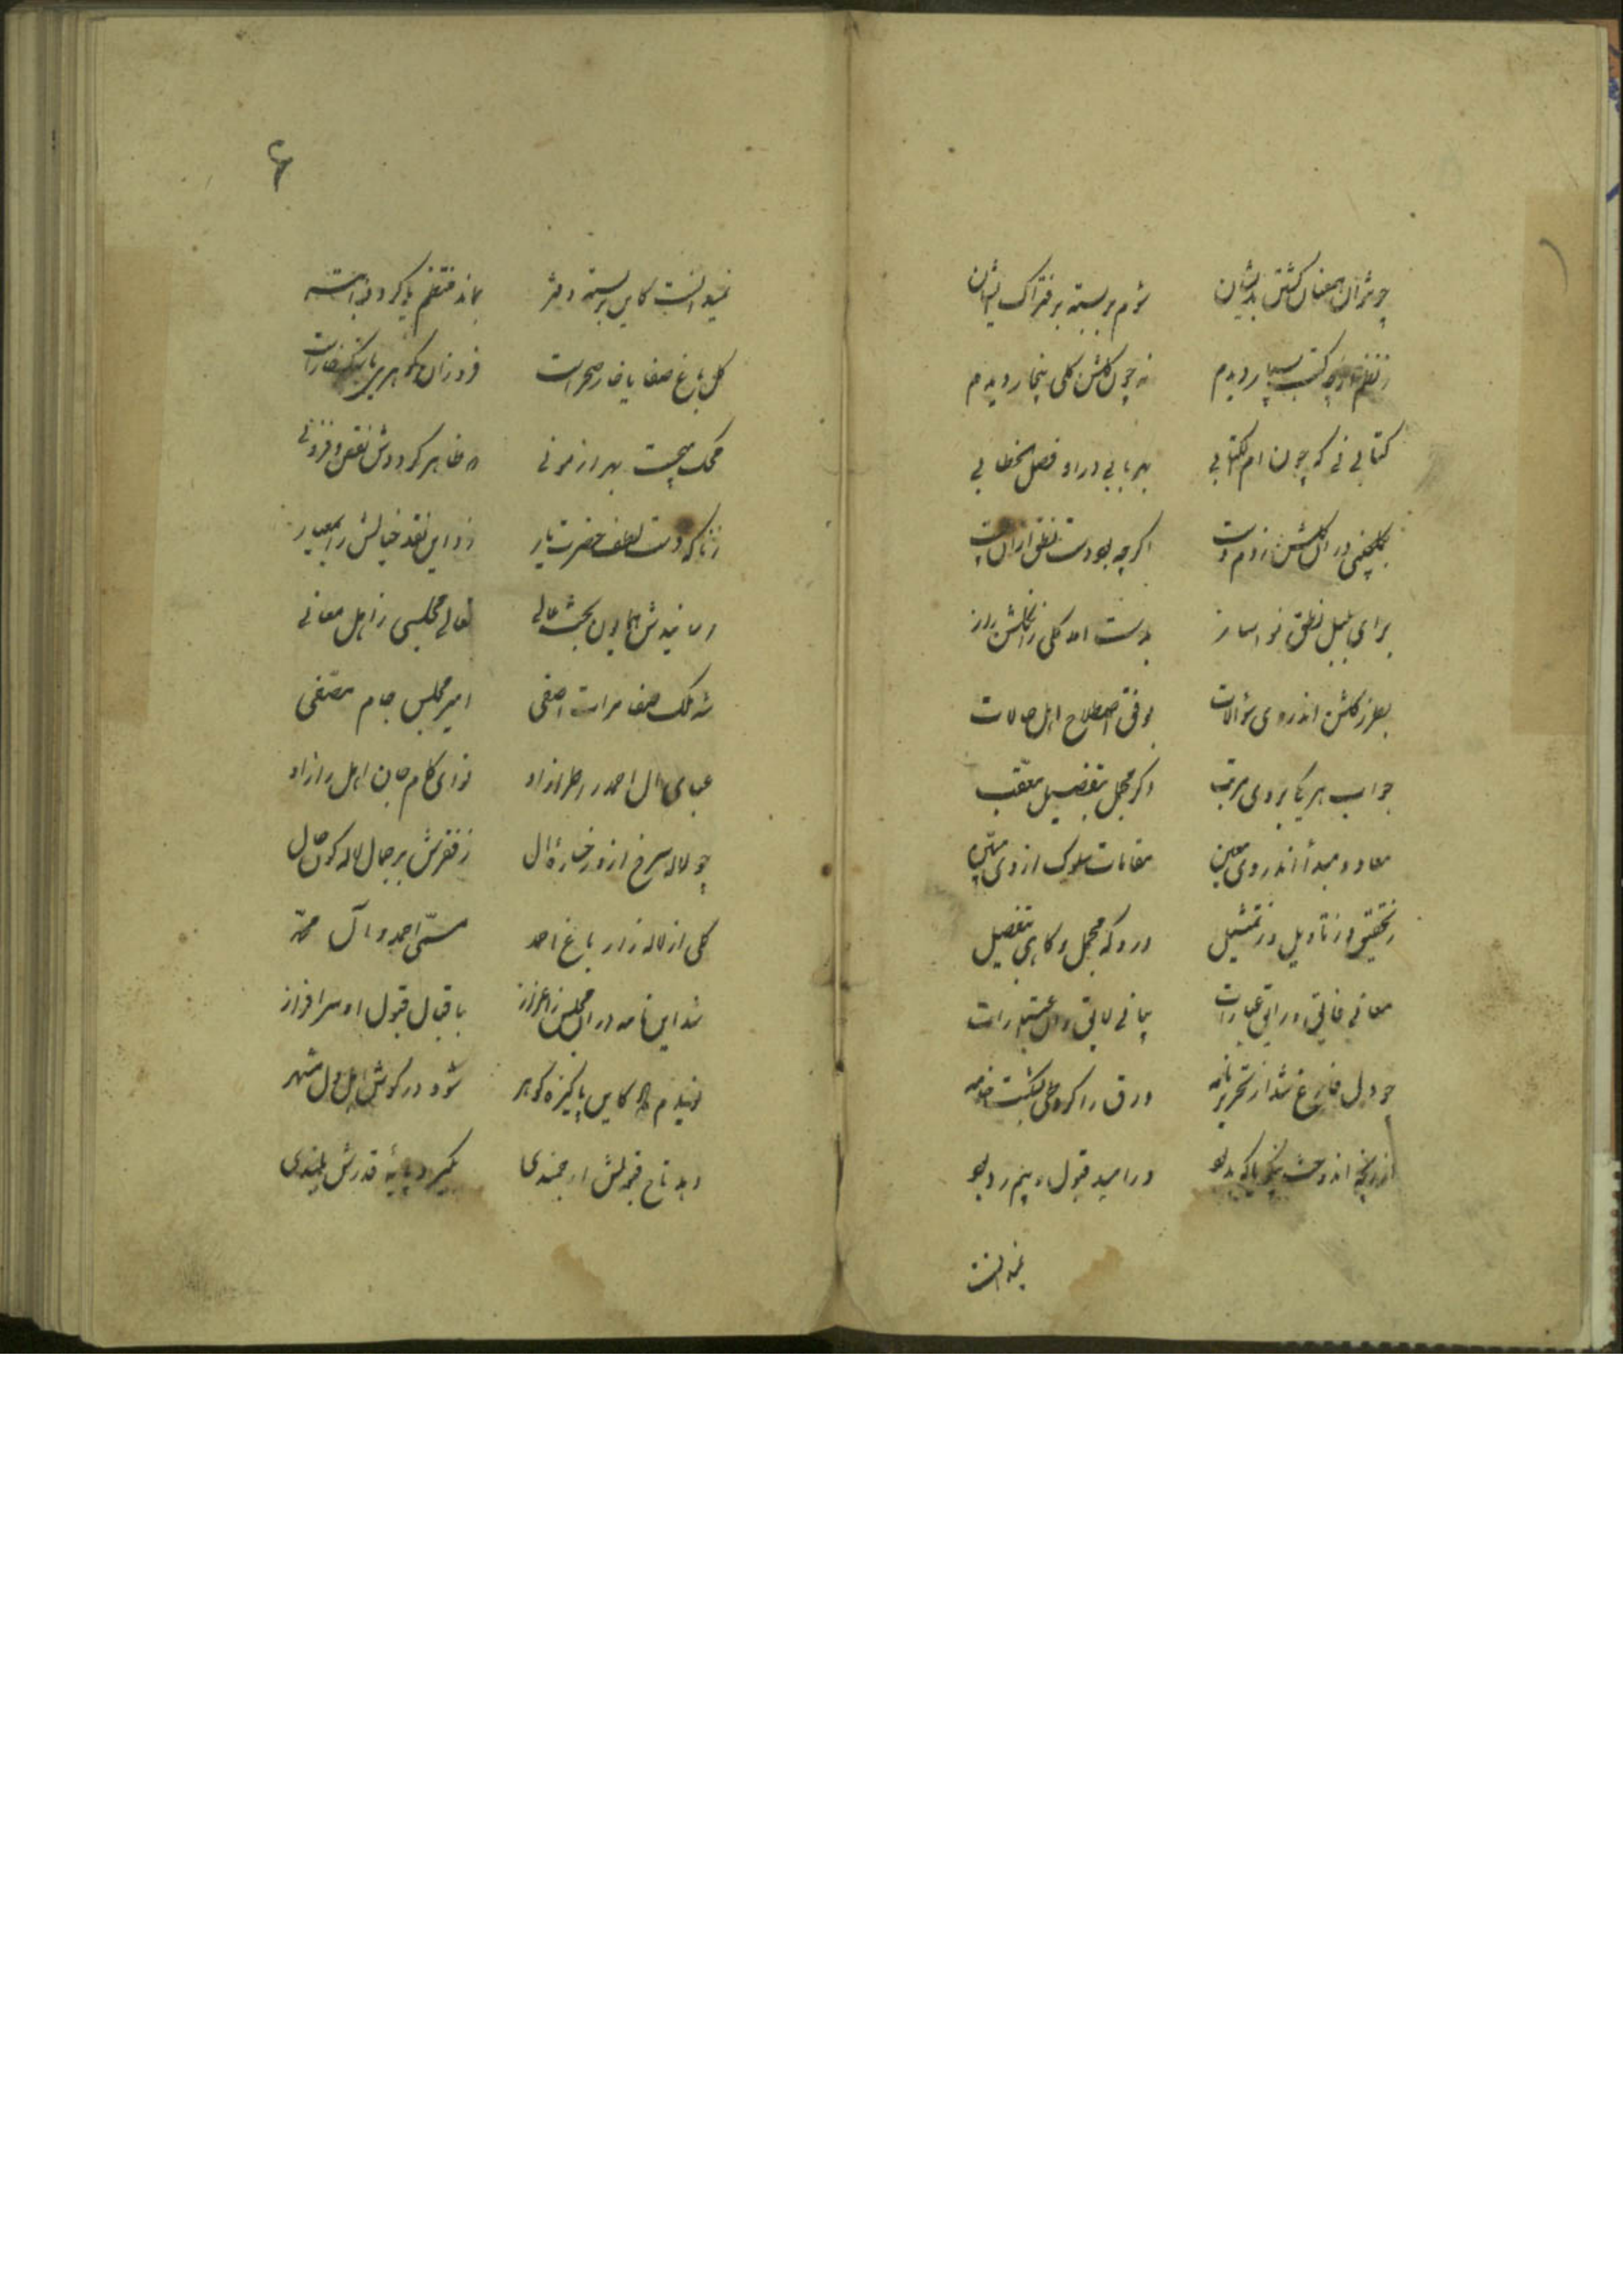 چو نتوان همعنان گشتن بدیشان شوم بربسته بر فتراک ایشان
ز نظم ارچه کتب بسیار دیدم نه چون گلشن گلی بیخار دیدم
کتابی نی که چون ام الکتابی بهر بابی در او فصل خطابی
بگلچینی در آن گلشن زدم دست اگرچه بود دست نطق ازان پست
برای بلبل نطق نواساز بدست آمد گلی زان گلشن راز
بطرز گلشن اندروی سؤالات بوفق اصطلاح اهل حالات
جواب هر یکا بروی مرتب اگر مجمل بتفصیل معقب
معاد و مبدأ اندروی معین مقامات سلوک از وی مبین
ز تحقیق و ز تاویل و ز تمثیل درو گه مجمل و گاهی بتفصیل
معانی فایق و رایق عبارات بیانی لایق و
چو دل فارغ شد از تحریر نامه ورق را کرد طی خامه
در امید قبول و بیم رد بود
نمیدانست
نمیدانست کاین بربسته دفتر بماند منتظم یا گردد ابتر
گل باغ صفا یا خار صحراست فروزان گوهری یا سنگ خاراست
محک میجست بهر آزمونی که ظاهر گرددش نقص و فزونی
ز ناگه دست لطف حضرت یار زد این نقد خیالش را بمعیار
رسانیدش همایون بخت عالی تعالی مجلسی ز اهل معانی
شه ملک صفا مرآت اصفی امیر مجلس جام مصفی
عبای آل احمد را طرازاد نوای کام جان اهل رازاد
چو لاله سرخ ازو رخساره آل ز فقرش بر جمال لاله گون خال
گلی از لاله زار باغ احمد مسمی احمد و آل محمد
شد این نامه در آن مجلس ز اعزاز باقبال قبول او سرافراز
نویدم داد کاین پاکیزه گوهر شود در گوش اهل دل مشهر
دهد تاج قبولش ارجمندی بگیرد پایهٔ قدرش بلندی